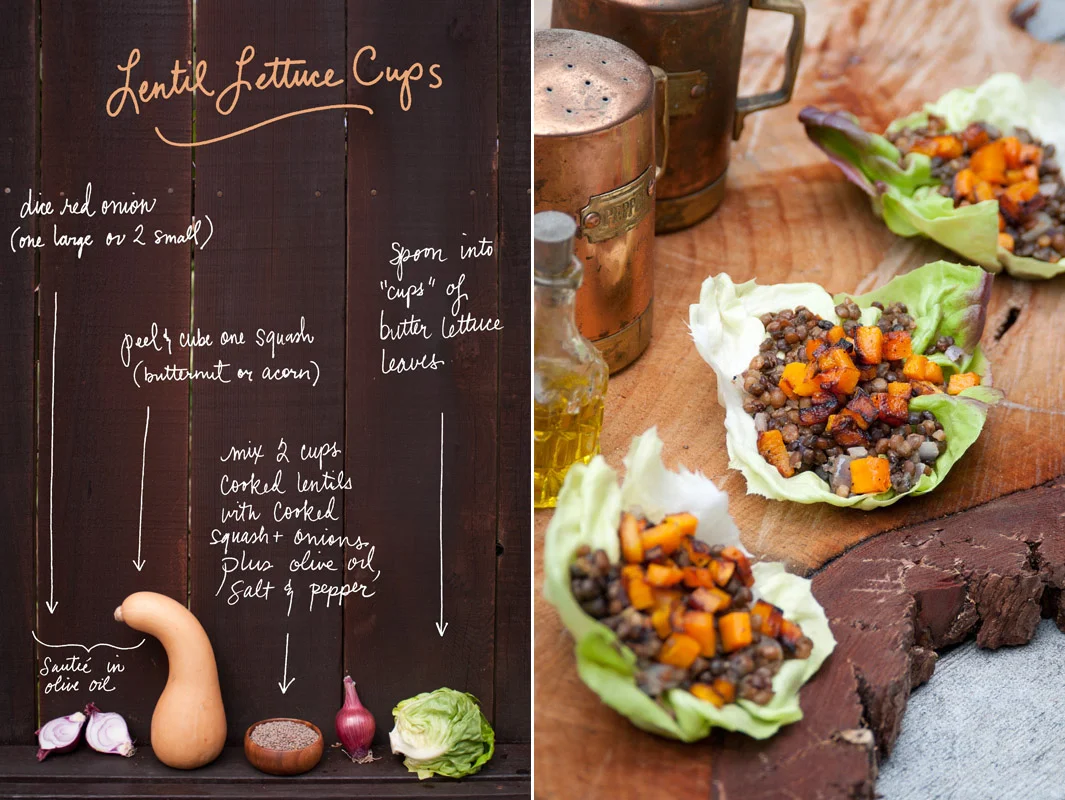 Lentil Lettuce Cups
dice red onion
(one large or 2 small)
peel & cube one squash
(butternut or acorn)
Sauté in
olive oil
mix 2 cups
cooked lentils
with cooked
squash + onions,
plus olive oil,
salt & pepper
spoon into
"cups" of
butter lettuce
leaves